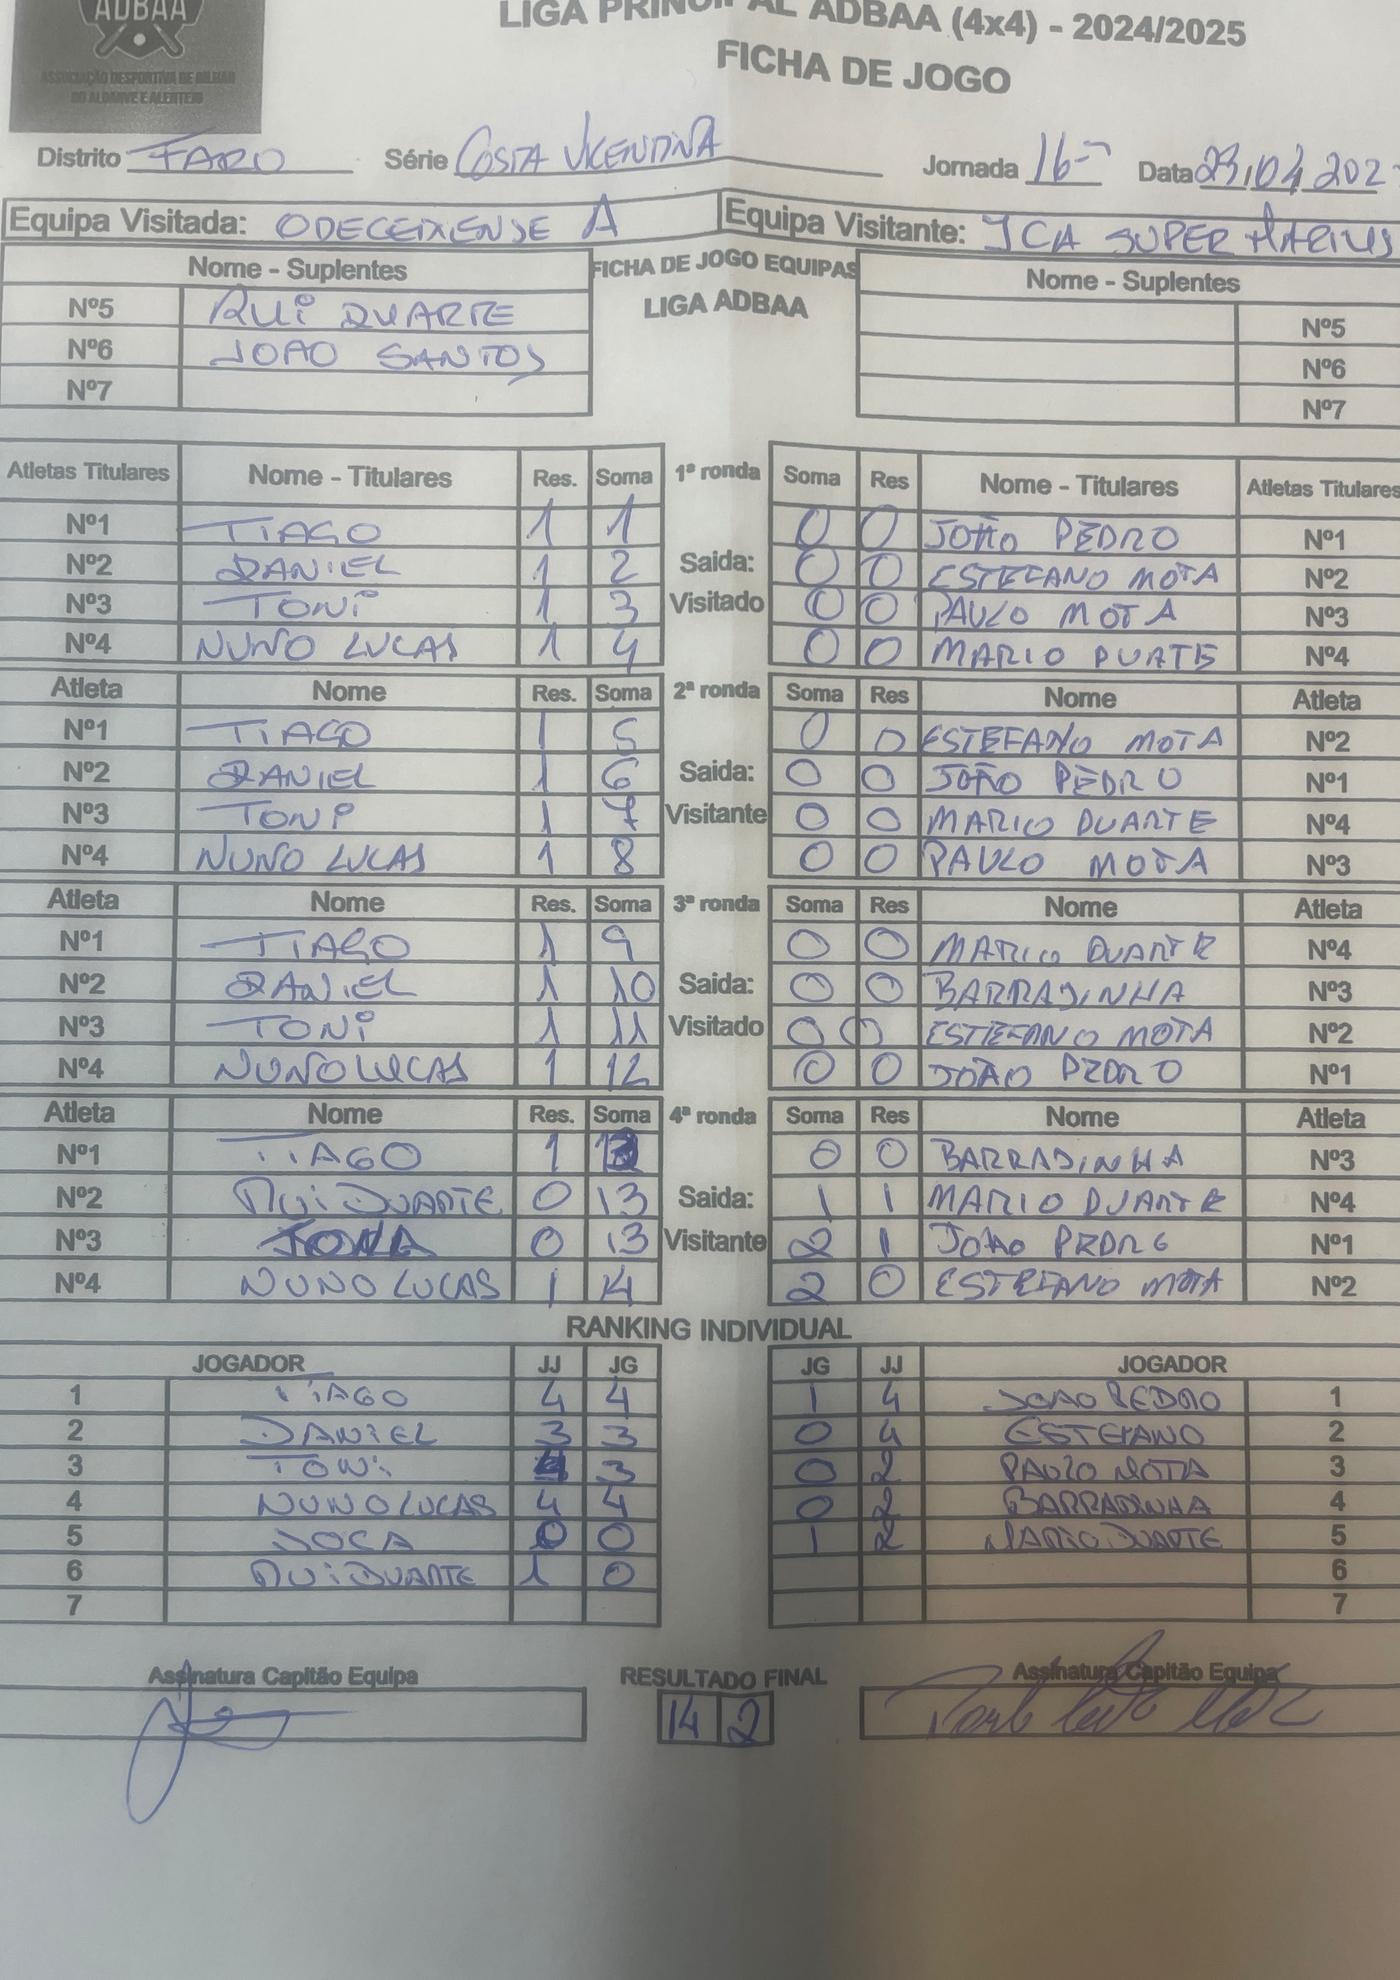 ADBAA
ASSOCIAÇÃO DESPORTIVA DE BILHAR
DO ALGARVE E ALENTEJO
LIGA PRINCIPAL ADBAA (4x4) - 2024/2025
FICHA DE JOGO
Distrito FARO Série COSTA VICENTINA Jornada 16ª Data 23,04,202
Equipa Visitada: ODECEIXENSE A Equipa Visitante: JCA SUPER MARIUS
Nome - Suplentes FICHA DE JOGO EQUIPAS Nome - Suplentes
LIGA ADBAA
Nº5 RUI DUARTE Nº5
Nº6 JOAO SANTOS Nº6
Nº7 Nº7
Atletas Titulares Nome - Titulares Res. Soma 1ª ronda Soma Res Nome - Titulares Atletas Titulares
Nº1 TIAGO 1 1 0 0 JOÃO PEDRO Nº1
Nº2 DANIEL 1 2 Saida: 0 0 ESTEFANO MOTA Nº2
Nº3 TONI 1 3 Visitado 0 0 PAULO MOTA Nº3
Nº4 NUNO LUCAS 1 4 0 0 MARIO DUATE Nº4
Atleta Nome Res. Soma 2ª ronda Soma Res Nome Atleta
Nº1 TIAGO 1 5 0 0 ESTEFANO MOTA Nº2
Nº2 DANIEL 1 6 Saida: 0 0 JOÃO PEDRO Nº1
Nº3 TONI 1 7 Visitante 0 0 MARIO DUARTE Nº4
Nº4 NUNO LUCAS 1 8 0 0 PAULO MOTA Nº3
Atleta Nome Res. Soma 3ª ronda Soma Res Nome Atleta
Nº1 TIAGO 1 9 0 0 MARIO DUARTE Nº4
Nº2 DANIEL 1 10 Saida: 0 0 BARRADINHA Nº3
Nº3 TONI 1 11 Visitado 0 0 ESTEFANO MOTA Nº2
Nº4 NUNO LUCAS 1 12 0 0 JOÃO PEDRO Nº1
Atleta Nome Res. Soma 4ª ronda Soma Res Nome Atleta
Nº1 TIAGO 1 13 0 0 BARRADINHA Nº3
Nº2 RUI DUARTE 0 13 Saida: 1 1 MARIO DUARTE Nº4
Nº3 0 13 Visitante 2 1 JOÃO PEDRO Nº1
Nº4 NUNO LUCAS 1 14 2 0 ESTEFANO MOTA Nº2
RANKING INDIVIDUAL
JOGADOR JJ JG JG JJ JOGADOR
1 TIAGO 4 4 1 4 JOAO PEDRO 1
2 DANIEL 3 3 0 4 ESTEFANO 2
3 TONI 3 0 2 PAULO MOTA 3
4 NUNO LUCAS 4 4 0 2 BARRADINHA 4
5 JOCA 0 0 1 2 MARIO DUARTE 5
6 RUI DUARTE 1 0 6
7 7
Assinatura Capitão Equipa RESULTADO FINAL Assinatura Capitão Equipa
14 2